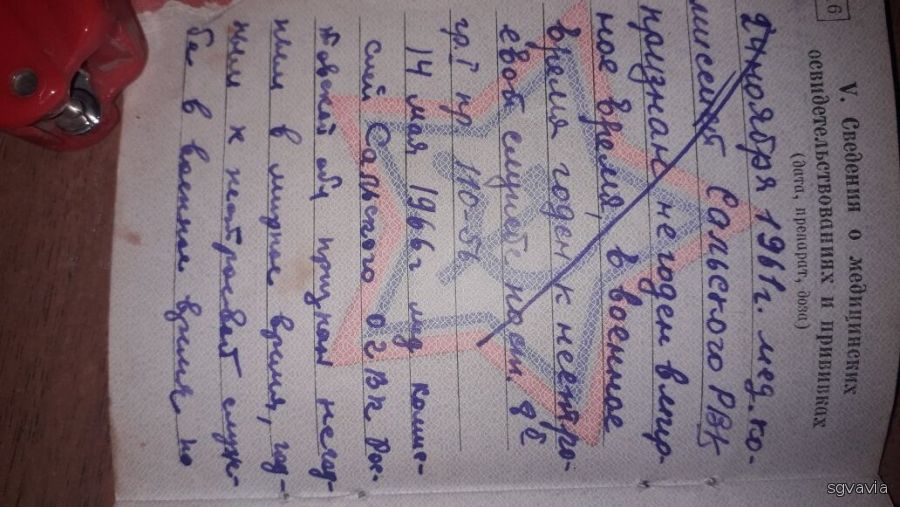 6
V. Сведения о медицинских
освидетельствованиях и прививках
(дата, препарат, доза)
24 ноября 1961 г. мед. ко-
миссией Сальского РВК
признан негоден в мир-
ное время, в военное
время годен к нестро-
евой службе по ст. 8 б
гр. I пр. 110-56
14 мая 1966 г мед комис-
сией Сальского ОГВК Рос-
товской обл признан негод-
ным в мирное время, год-
ным к нестроевой служ-
бе в военное время по
sgvavia